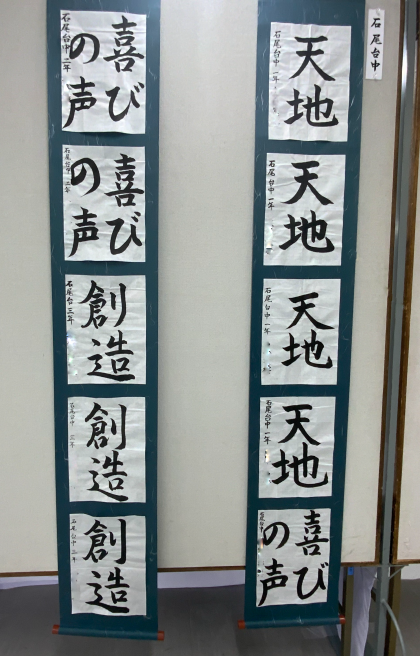 石尾台中
天地
石尾台中 一年
天地
石尾台中 一年
天地
石尾台中 一年
天地
石尾台中 一年
喜び
の声
石尾台中
喜び
の声
石尾台中 二年
喜び
の声
石尾台中 二年
創造
石尾台 三年
創造
石尾台中 三年
創造
石尾台中 二年